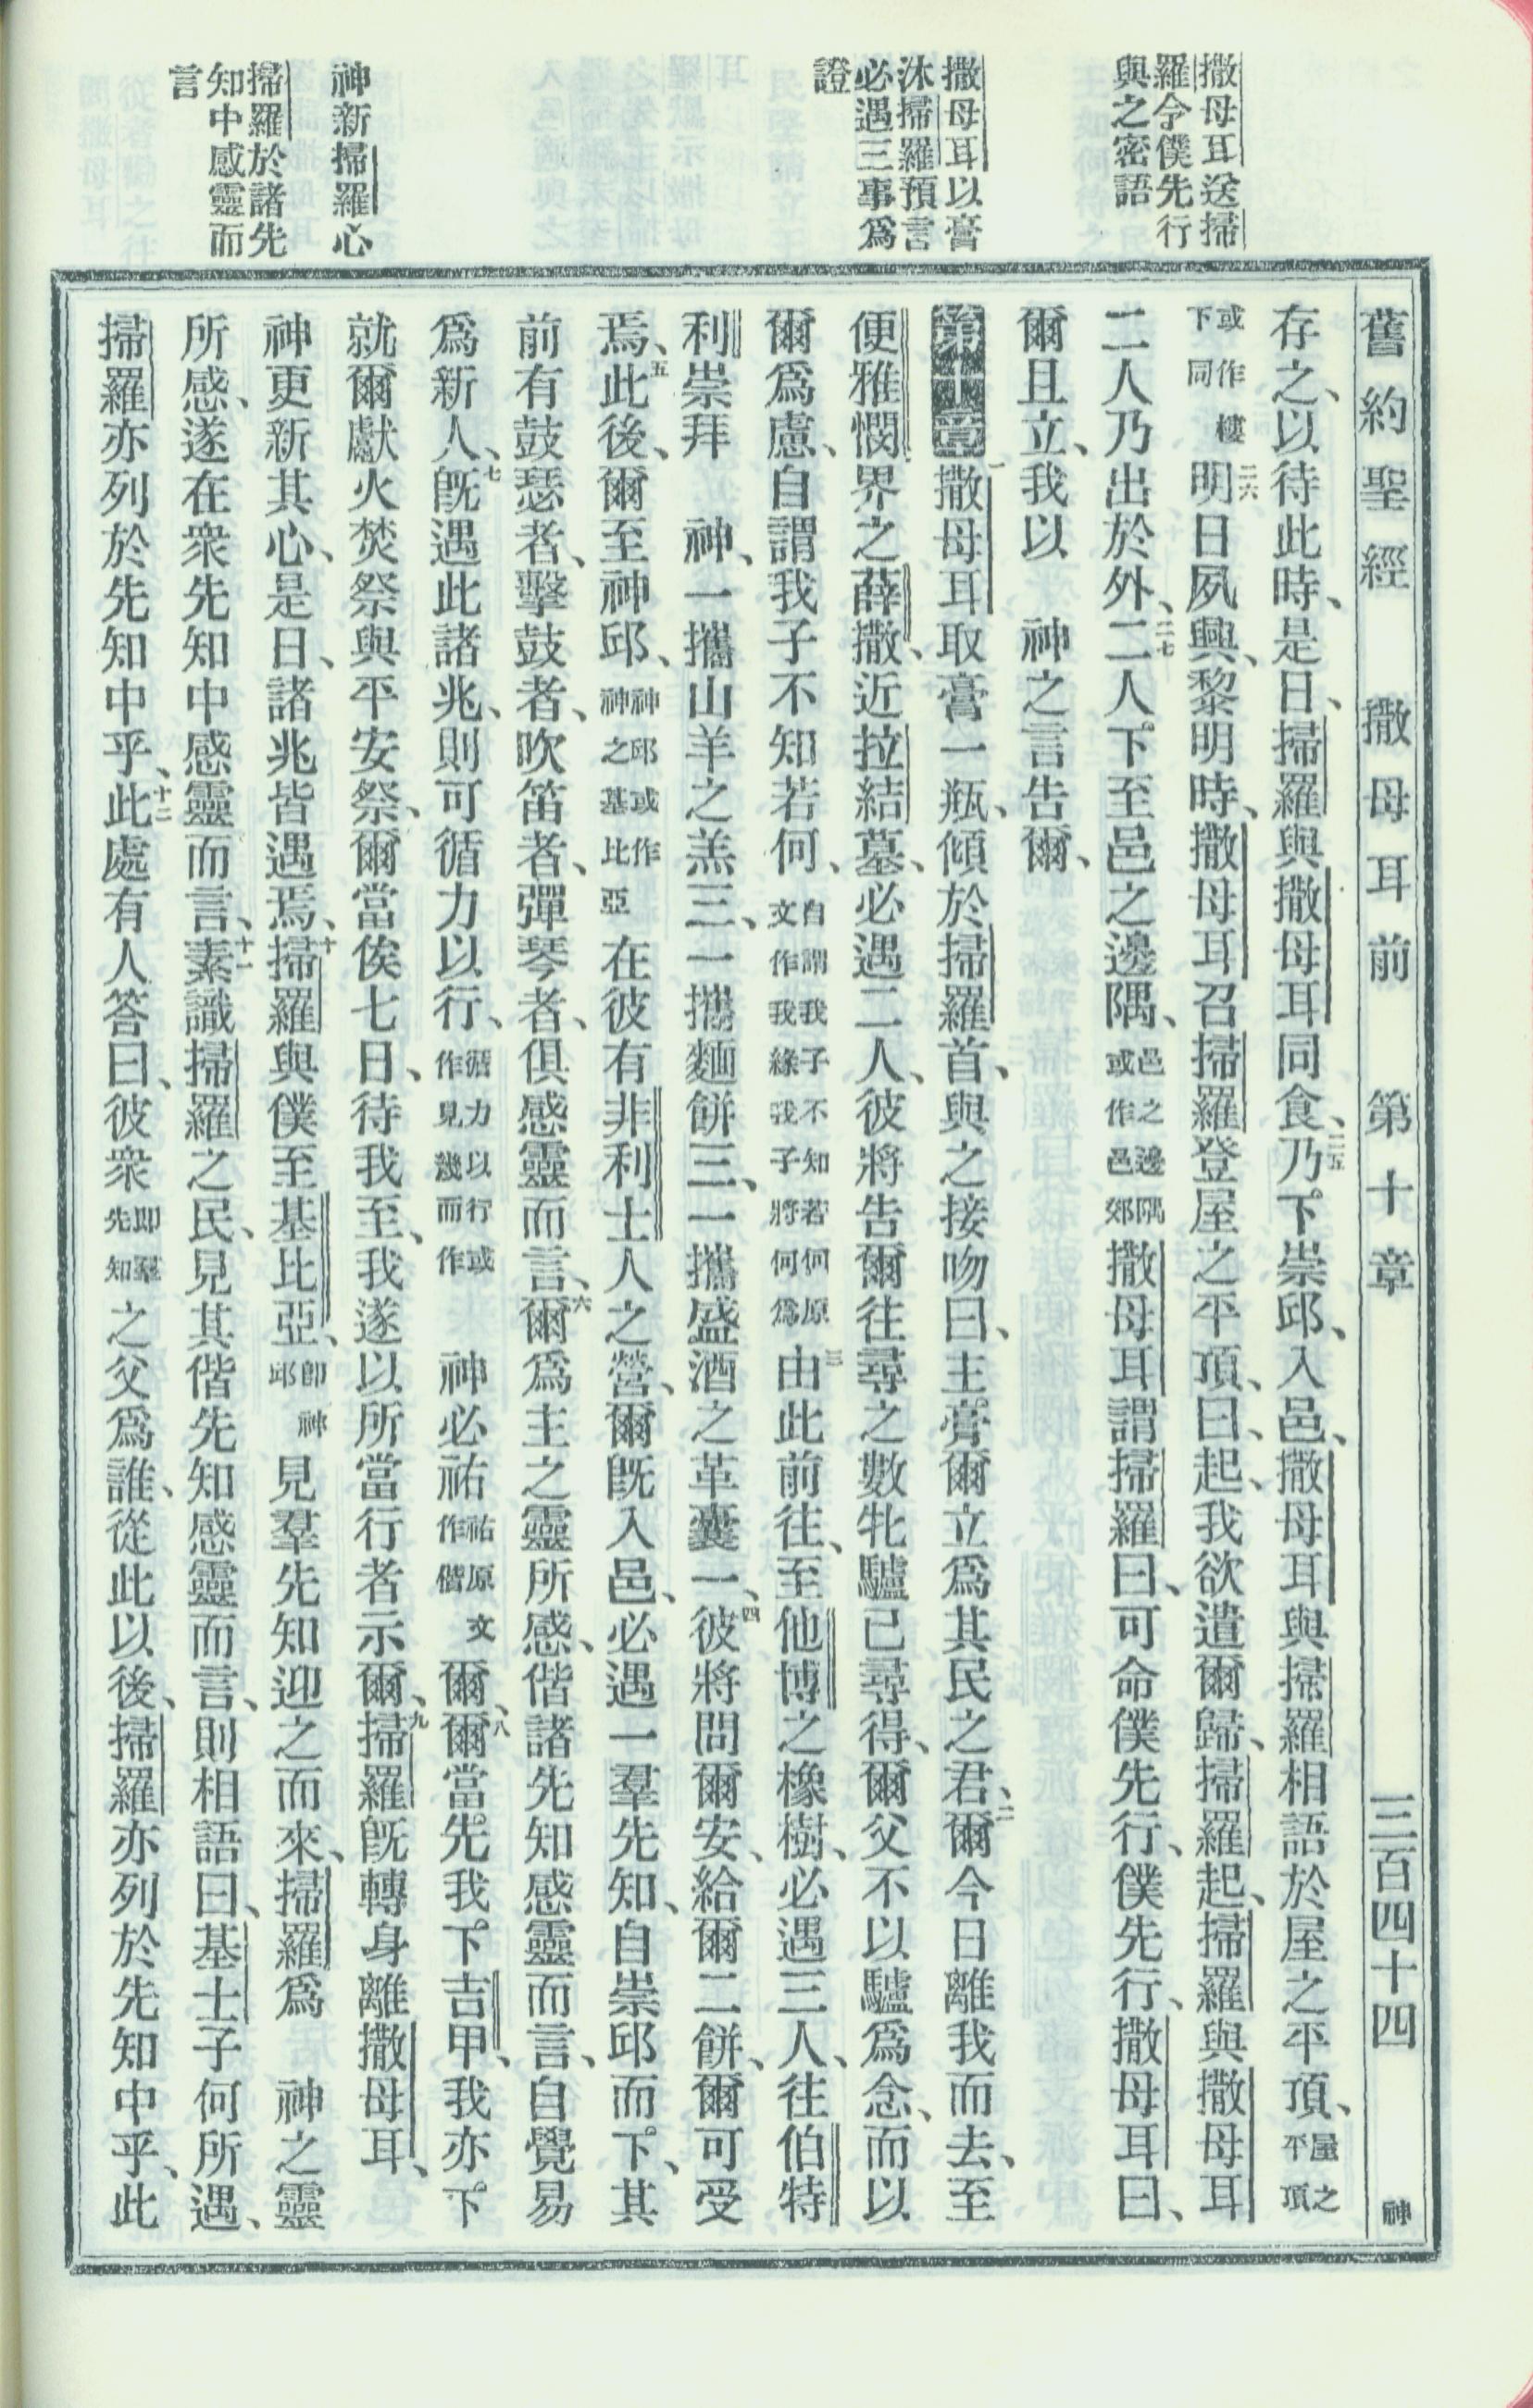 舊約聖經　撒母耳前　第十章　三百四十四　神
撒母耳送掃
羅令僕先行
與之密語
撒母耳以膏
沐掃羅預言
必遇三事爲
證
神新掃羅心
掃羅於諸先
知中感靈而
言
存之、以待此時、是日、掃羅與撒母耳同食、二五乃下崇邱、入邑、撒母耳與掃羅相語於屋之平頂、屋之平頂
或作樓下同 二六明日夙興、黎明時、撒母耳召掃羅登屋之平頂、曰、起、我欲遣爾歸、掃羅起、掃羅與撒母耳
二人乃出於外、二七二人下至邑之邊隅、邑之邊隅或作邑郊 撒母耳謂掃羅曰、可命僕先行、僕先行、撒母耳曰、
爾且立、我以　神之言告爾、
第十章 一撒母耳取膏一瓶、傾於掃羅首、與之接吻曰、主膏爾立爲其民之君、二爾今日離我而去、至
便雅憫界之薛撒、近拉結墓、必遇二人、彼將告爾往尋之數牝驢已尋得、爾父不以驢爲念、而以
爾爲慮、自謂我子不知若何、自謂我子不知若何原文作我緣我子將何爲 三由此前往、至他博之橡樹、必遇三人、往伯特
利崇拜　神、一攜山羊之羔三、一攜麵餅三、一攜盛酒之革囊一、四彼將問爾安、給爾二餅、爾可受
焉、五此後、爾至神邱、神邱或作神之基比亞 在彼有非利士人之營、爾旣入邑、必遇一羣先知、自崇邱而下、其
前有鼓瑟者、擊鼓者、吹笛者、彈琴者、俱感靈而言、六爾爲主之靈所感、偕諸先知感靈而言、自覺易
爲新人、七旣遇此諸兆、則可循力以行、循力以行或作見幾而作　神必祐祐原文作偕爾、八爾當先我下吉甲、我亦下
就爾獻火焚祭與平安祭、爾當俟七日、待我至、我遂以所當行者示爾、九掃羅旣轉身離撒母耳、
神更新其心、是日、諸兆皆遇焉、十掃羅與僕至基比亞、卽神邱 見羣先知迎之而來、掃羅爲　神之靈
所感、遂在衆先知中感靈而言、十一素識掃羅之民、見其偕先知感靈而言、則相語曰、基士子何所遇、
掃羅亦列於先知中乎、十二此處有人答曰、彼衆卽羣先知之父爲誰、從此以後、掃羅亦列於先知中乎、此